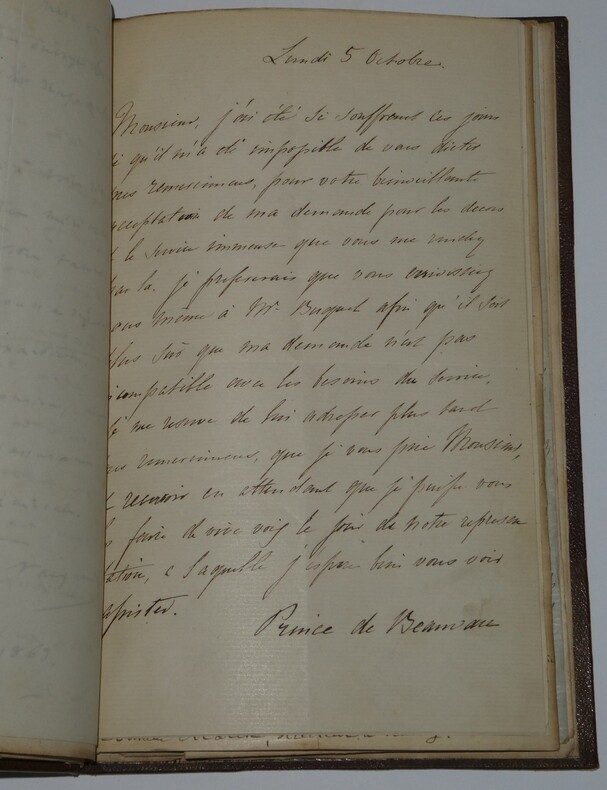 Lundi 5 Octobre.
Monsieur, j'ai été si souffrant ces jours
ci qu'il m'a été impossible de vous dicter
mes remerciemens, pour votre bienveillante
acceptation de ma demande pour les decors
et le service immense que vous me rendez
par la. je prefererais que vous
vous même à Mr. Buquet afin qu'il soit
plus sûr que ma demande n'est pas
incompatible avec les besoins du service,
je me reserve de lui adresser plus tard
mes remerciemens, que je vous prie Monsieur,
de recevoir en attendant que je puisse vous
les faire de vive voix le jour de notre represen
tation, a laquelle j'espere bien vous voir
assister.
Prince de Beauvau